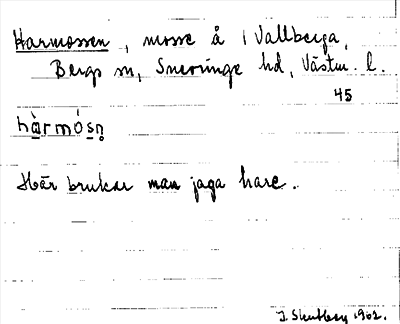 Harmossen, mosse å i Vallberga,
Bergs sn, Snevringe hd, Västm. l.
45
hàrmósn̥
Här brukar man jaga hare.
J. 1962.